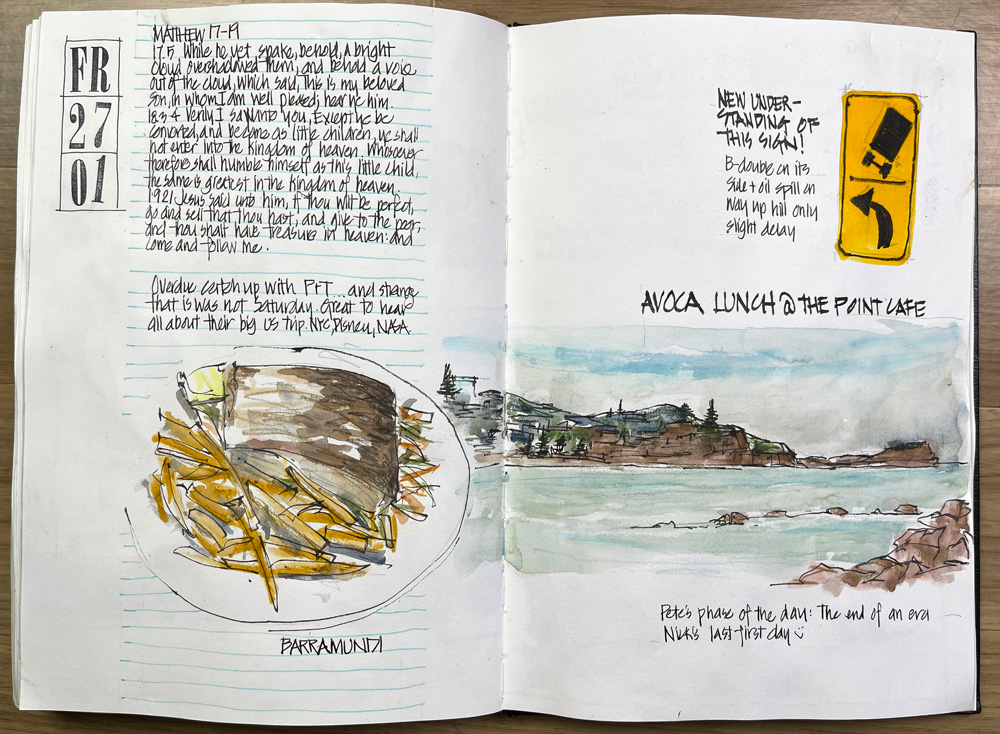 FR
27
01
MATTHEW 17-19
17.5 While he yet spake, behold, a bright
cloud overshadowed them, and behold a voice
out of the cloud, which said, This is my beloved
Son, in whom I am well pleased; hear ye him.
18.3-4 Verily I say unto you, Except ye be
converted, and become as little children, ye shall
not enter into the Kingdom of heaven. Whosoever
therefore shall humble himself as this little child,
the same is greatest in the kingdom of heaven.
19.21 Jesus said unto him, if thou wilt be perfect,
go and sell that thou hast, and give to the poor,
and thou shalt have treasure in heaven: and
come and follow me.
Overdue catch up with P+T... and strange
that is was not Saturday. Great to hear
all about their big US trip. NYC, Disney, NASA.
BARRAMUNDI
NEW UNDER-
STANDING OF
THIS SIGN!
B-double on its
side + oil spill on
way up hill only
slight delay
AVOCA LUNCH @ THE POINT CAFE
Pete's phase of the day: The end of an era
Nick's last first day